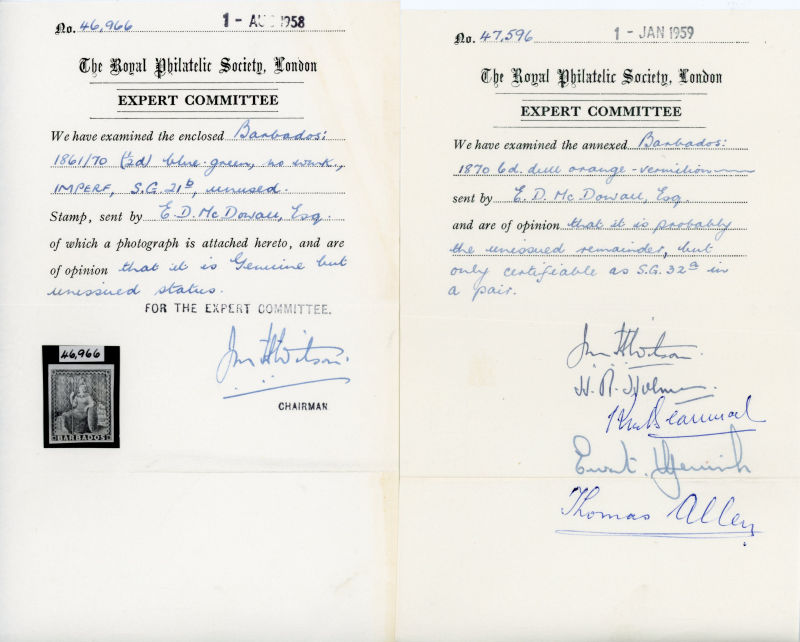 No. 46,966 1 - AUG 1958
The Royal Philatelic Society, London
EXPERT COMMITTEE
We have examined the enclosed Barbados:
1861/70 (½d) blue-green, no wmk.,
IMPERF, S.G. 21b, unused.
Stamp, sent by E. D. McDowall, Esq.
of which a photograph is attached hereto, and are
of opinion that it is Genuine but
unissued status.
FOR THE EXPERT COMMITTEE.
CHAIRMAN
46,966
BARBADOS
No. 47,596 1 - JAN 1959
The Royal Philatelic Society, London
EXPERT COMMITTEE
We have examined the annexed Barbados:
1870 6d. dull orange-vermilion
sent by E. D. McDowall, Esq.
and are of opinion that it is probably
the unissued remainder, but
only certifiable as S.G. 32a in
a pair.
Thomas Allen